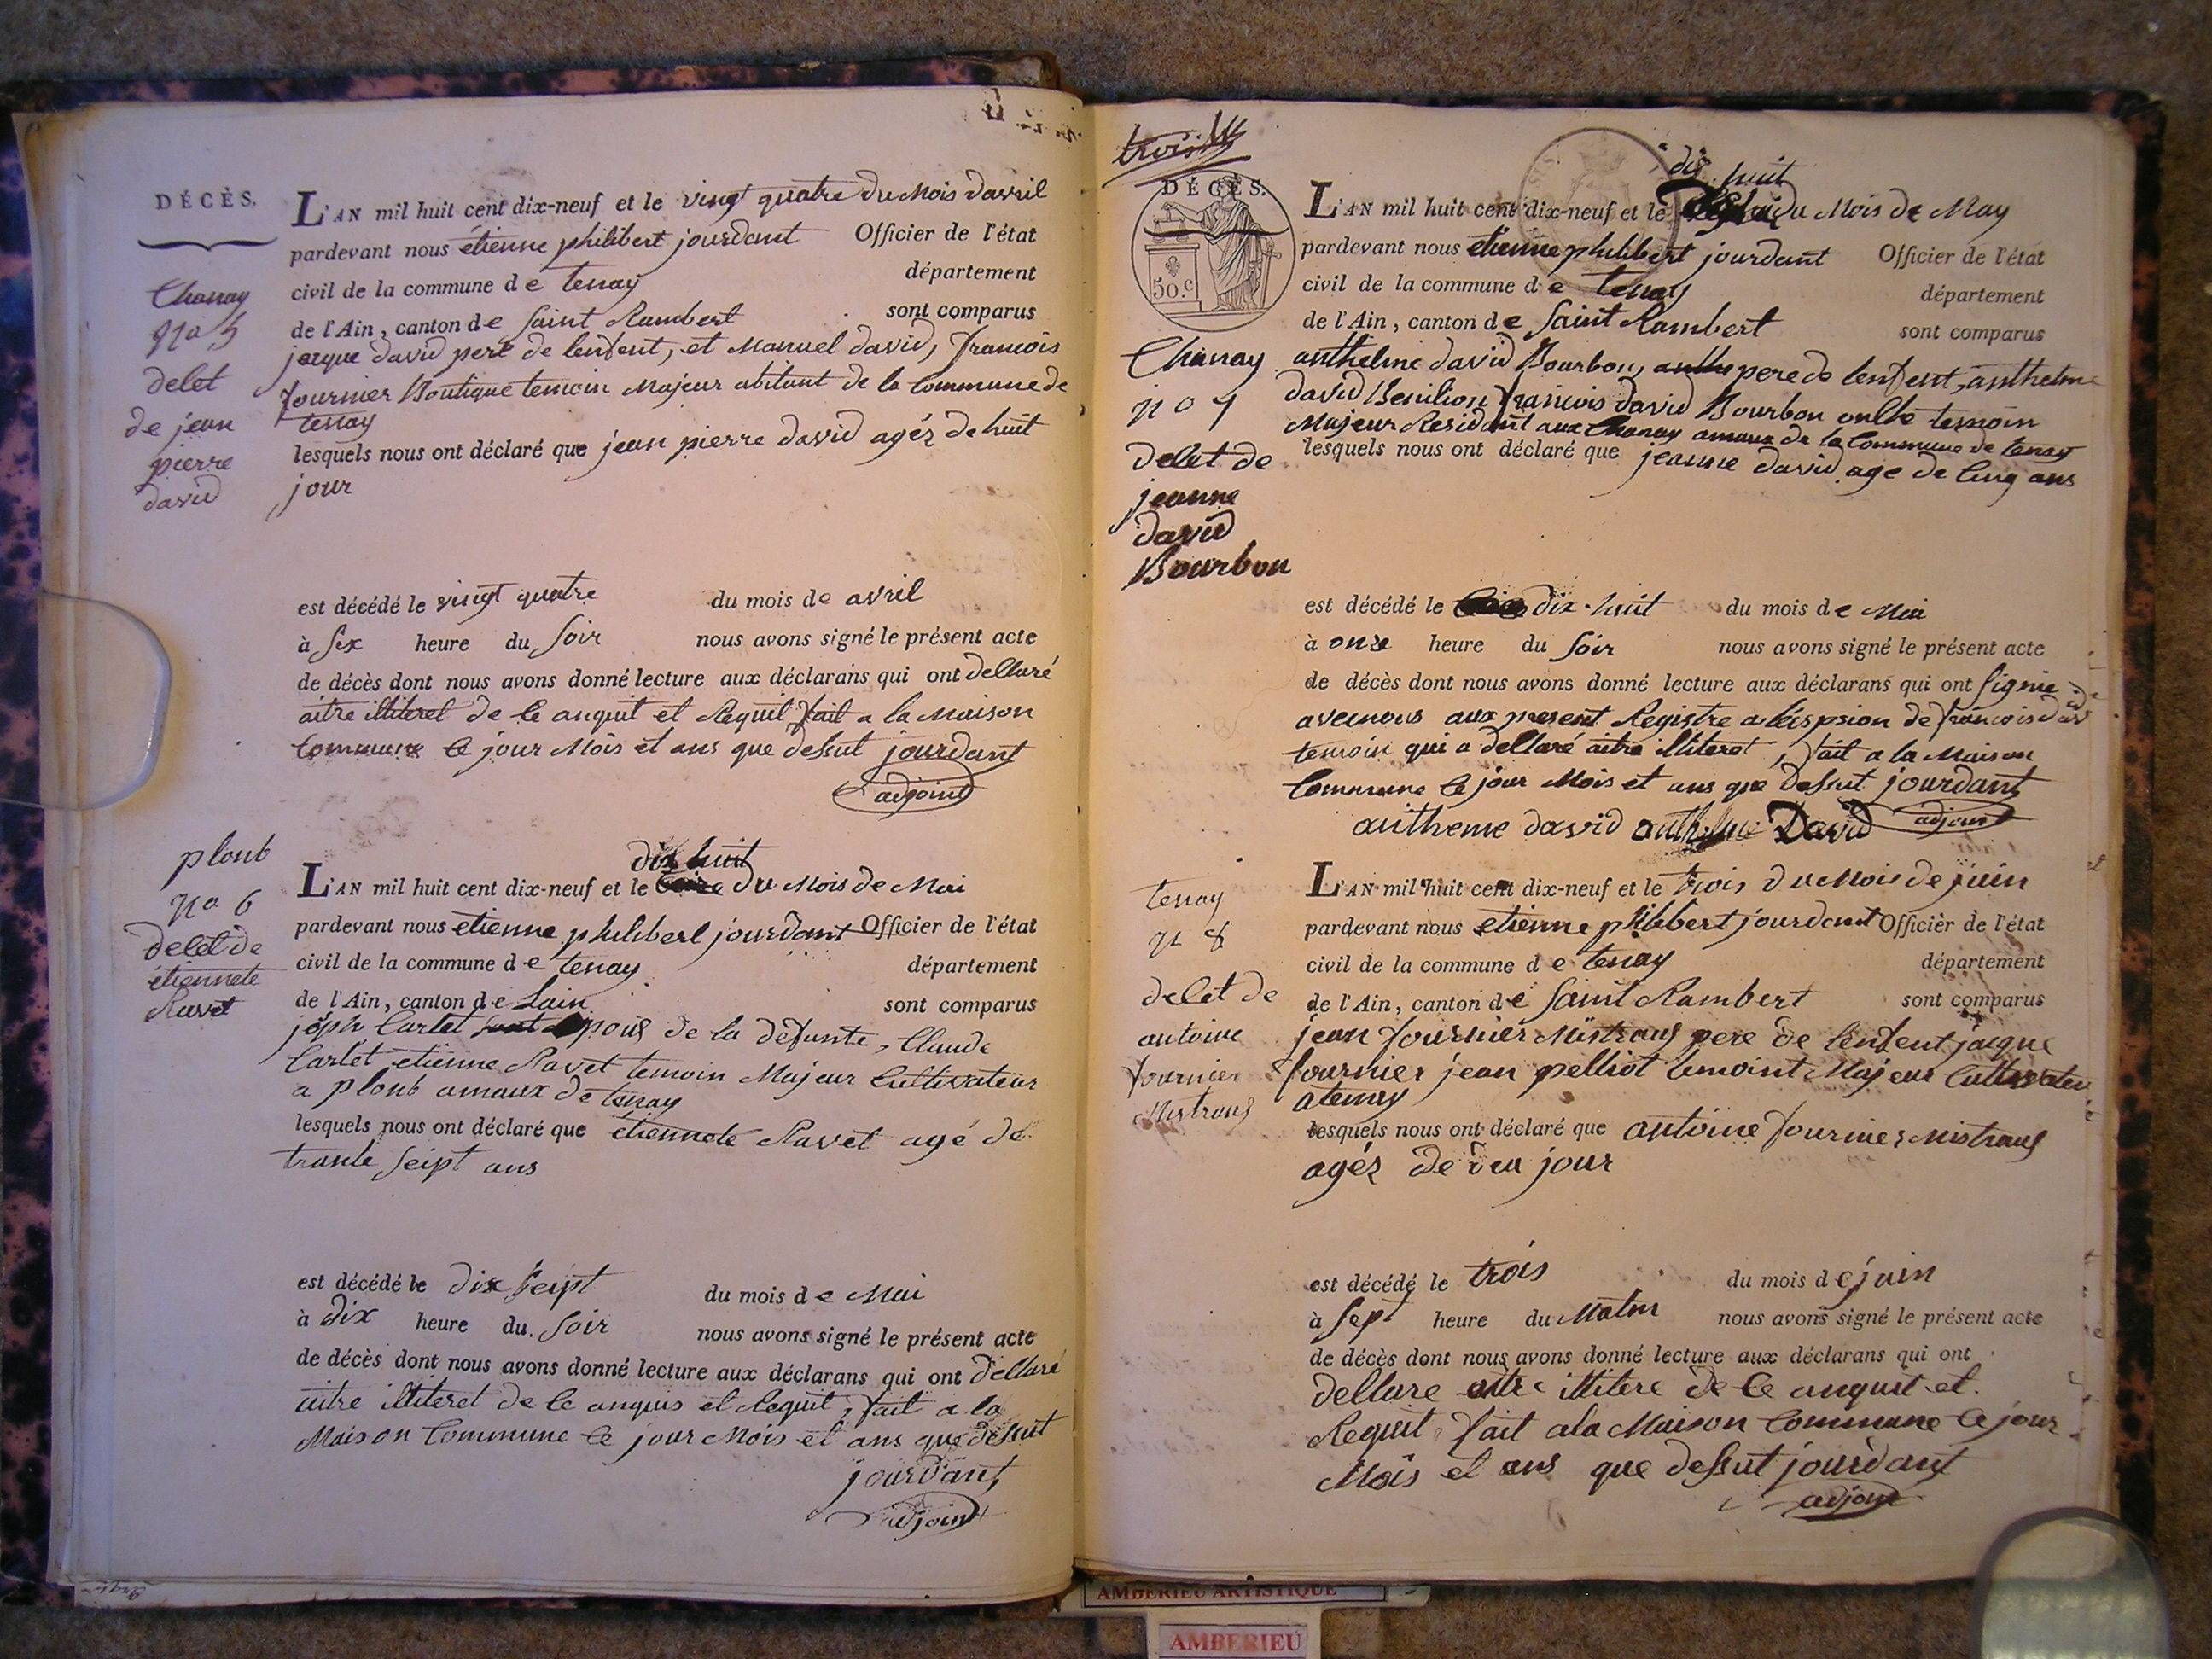 DÉCÈS.
L'AN mil huit cent dix-neuf et le vingt quatre du Mois davril
pardevant nous étienne philibert jourdant Officier de l'état
civil de la commune de tenay département
de l'Ain, canton de Saint Rambert sont comparus
jacque david pere de lenfent, et Manuel david, francois
fournier Boutique temoin Majeur abitant de la Commune de
tenay
lesquels nous ont déclaré que jean pierre david agéz de huit
jour
Chanay
no 5
delet
de jean
pierre
david
est décédé le vingt quatre du mois de avril
à Six heure du Soir nous avons signé le présent acte
de décès dont nous avons donné lecture aux déclarans qui ont dellaré
aitre illiteret de ce anquit et Requit, fait a la Maison
Commune ce jour Mois et ans que dessut jourdant
adjoint
plont
no 6
delet de
étiennete
Ravet
dix huit
L'AN mil huit cent dix-neuf et le du Mois de Mai
pardevant nous etienne philibert jourdant Officier de l'état
civil de la commune de tenay département
de l'Ain, canton de Lain sont comparus
joph Carlet epoux de la defunte, Claude
Carlet etienne Ravet temoin Majeur Cultivateur
a plont amaux de tenay
lesquels nous ont déclaré que étiennete Ravet agé de
trante seipt ans
est décédé le dix seipt du mois de Mai
à dix heure du Soir nous avons signé le présent acte
de décès dont nous avons donné lecture aux déclarans qui ont dellaré
aitre illiteret de ce anquis et Requit, fait a la
Maison Commune ce jour Mois et ans que dessut
jourdant
adjoint
trois
DÉCÈS.
50.c
dix huit
L'AN mil huit cent dix-neuf et le du Mois de May
pardevant nous etienne philibert jourdant Officier de l'état
civil de la commune de tenay département
de l'Ain, canton de Saint Rambert sont comparus
anthelme david Bourbon, pere de lenfent, anthelme
david francois david Bourbon temoin
Majeur Residant aux Chanay amaux de la Commune de tenay
lesquels nous ont déclaré que jeanne david age de Cinq ans
Chanay
no 7
delet de
jeanne
david
Bourbon
est décédé le dix-huit du mois de Mai
à onze heure du Soir nous avons signé le présent acte
de décès dont nous avons donné lecture aux déclarans qui ont signie
avecnous aux present Registre de francois
temoin qui a dellaré aitre illiteret, fait a la Maison
Commune ce jour Mois et ans que dessut jourdant
antheme david anthelme David adjoint
tenay
n 8
delet de
antoine
fournier
Mistrans
L'AN mil huit cent dix-neuf et le trois du Mois de juin
pardevant nous etienne philibert jourdant Officier de l'état
civil de la commune de tenay département
de l'Ain, canton de Saint Rambert sont comparus
jean fournier Mistrans pere de lenfent jacque
fournier jean pelliot temoint Majeur
atenay
lesquels nous ont déclaré que antoine fournier Mistrans
agéz de un jour
est décédé le trois du mois de juin
à sept heure du Matin nous avons signé le présent acte
de décès dont nous avons donné lecture aux déclarans qui ont
dellare aitre illitere de ce anquit et
Requit fait ala Maison Commune ce jour
Mois et ans que dessut jourdant
adjoint
AMBERIEU ARTISTIQUE
AMBERIEU